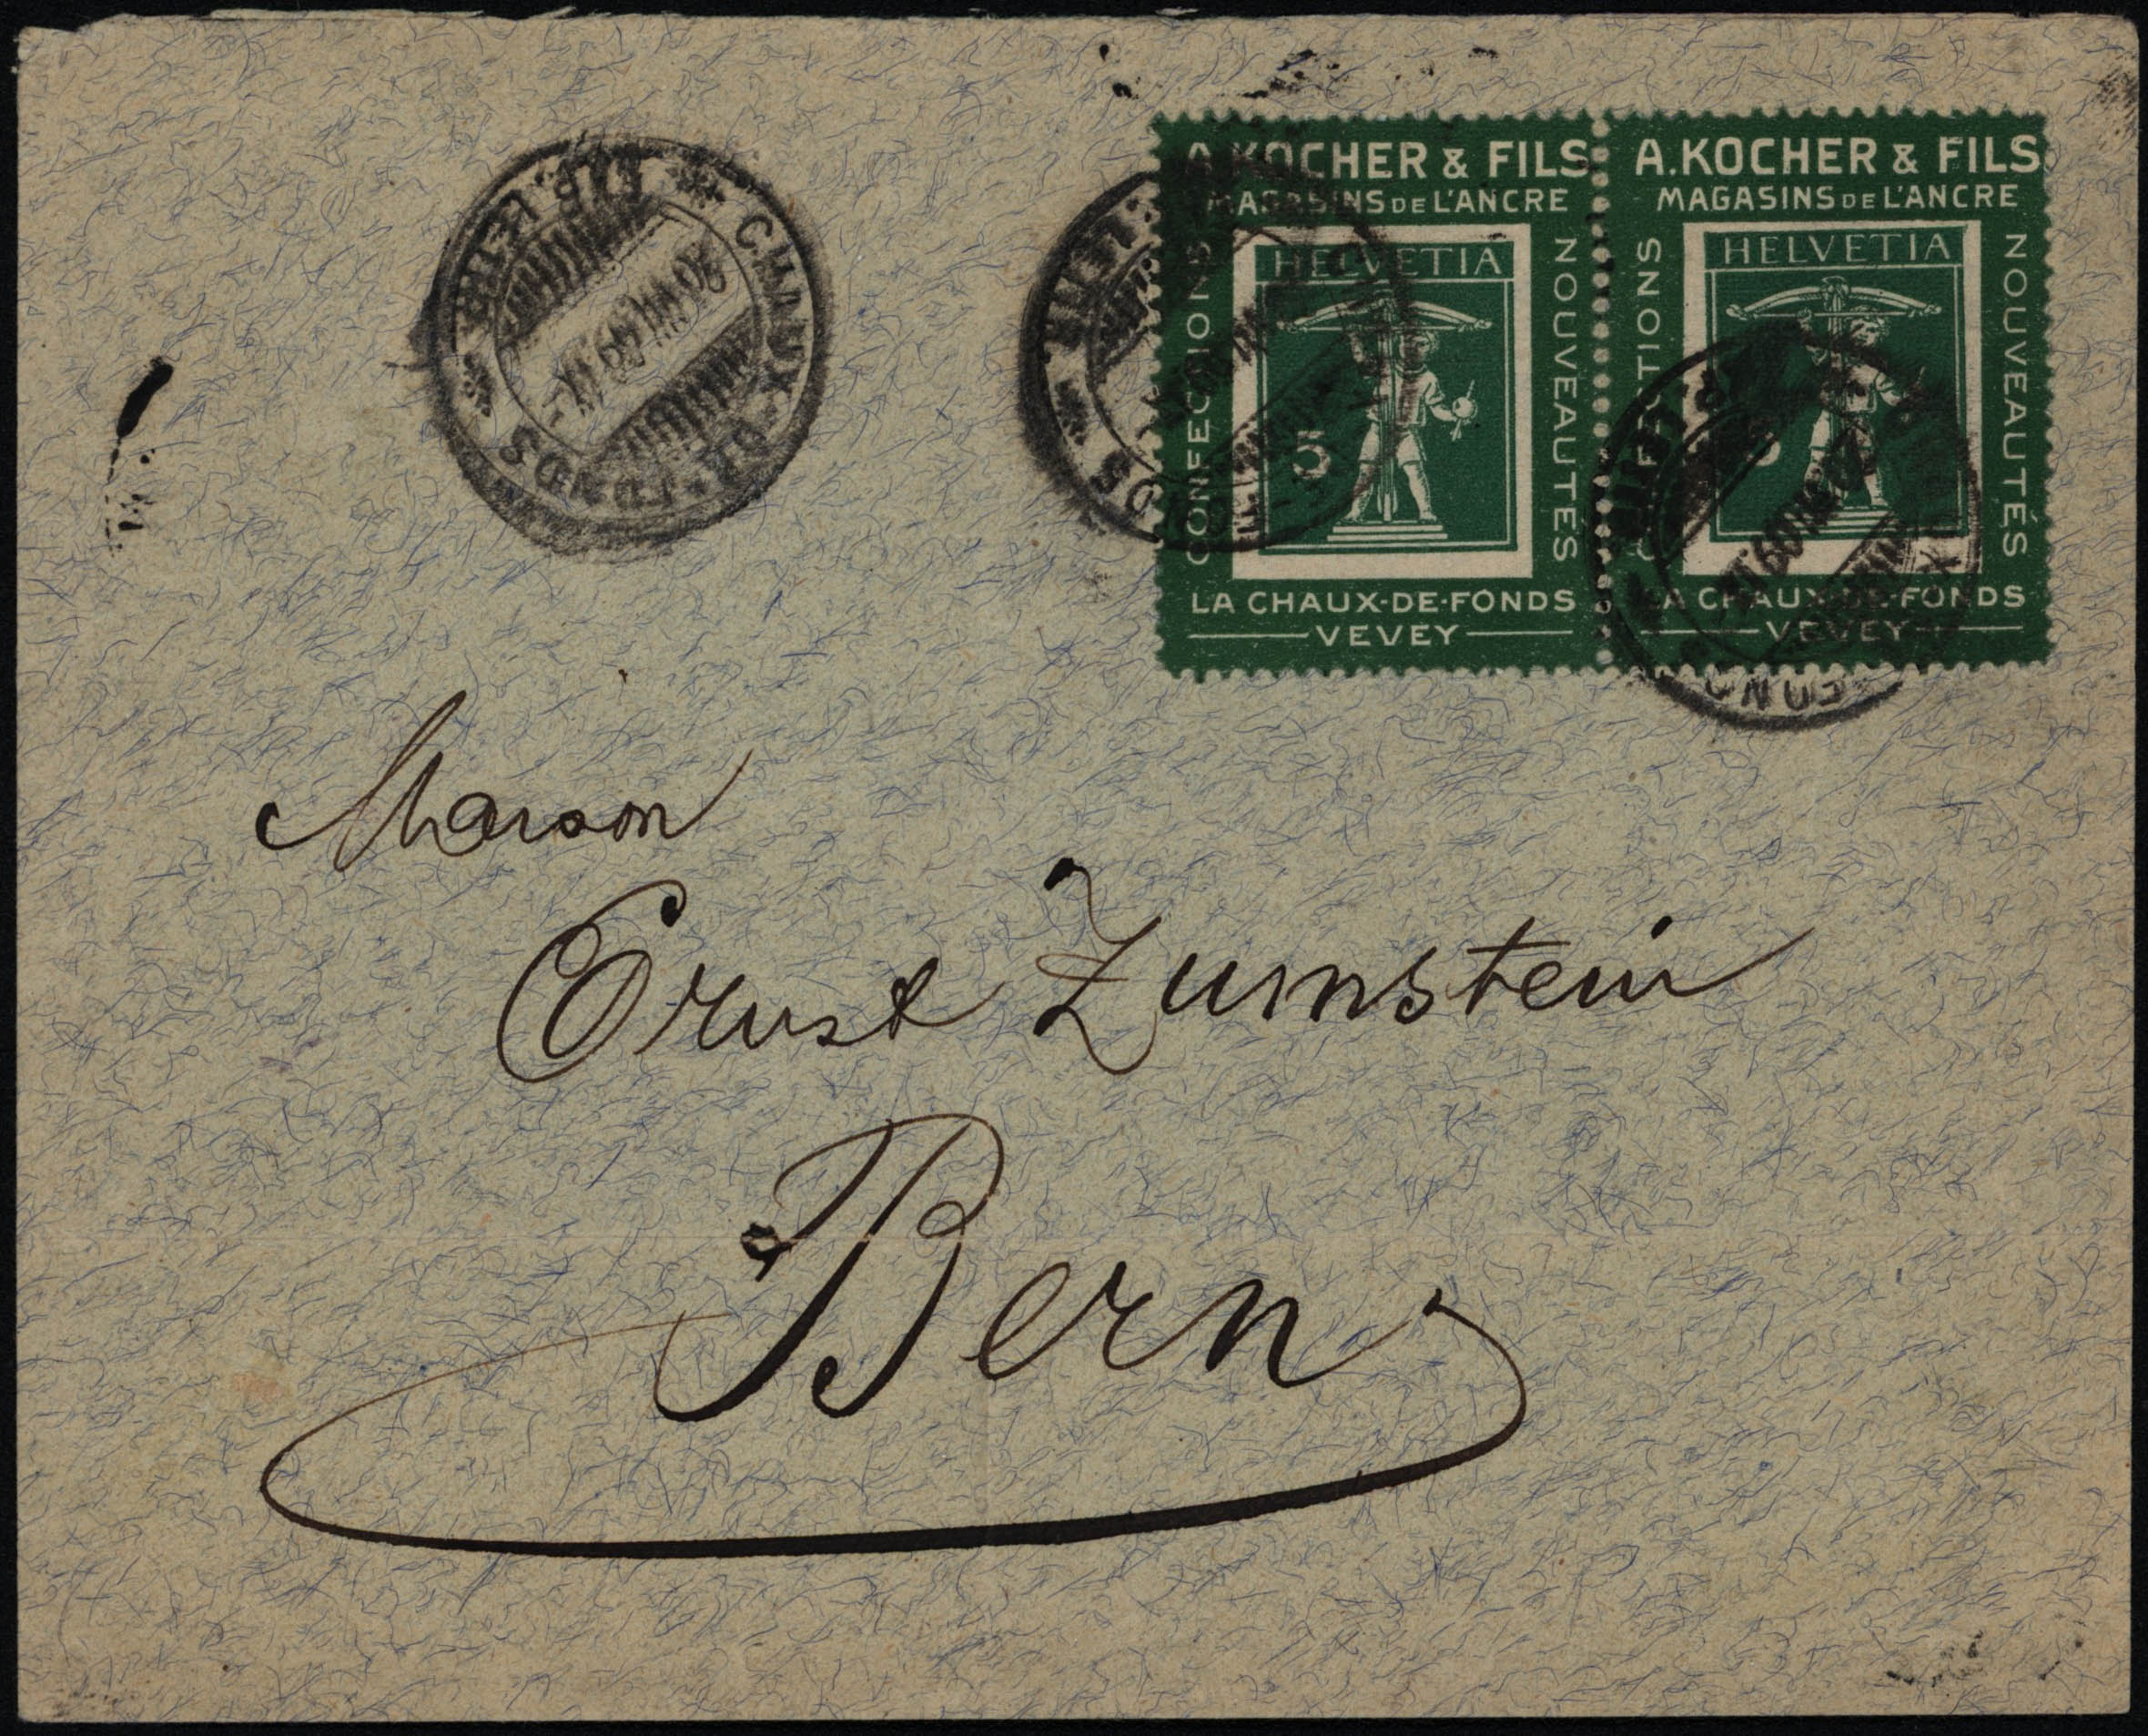 CHAUX-DE-FONDS
EXP. LETTR.
20 VII 09 XI-
A.KOCHER & FILS
MAGASINS DE L'ANCRE
CONFECTIONS
NOUVEAUTÉS
HELVETIA
5
LA CHAUX-DE-FONDS
VEVEY
A.KOCHER & FILS
MAGASINS DE L'ANCRE
CONFECTIONS
NOUVEAUTÉS
HELVETIA
LA CHAUX-DE-FONDS
VEVEY
Maison
Ernst Zumstein
Bern